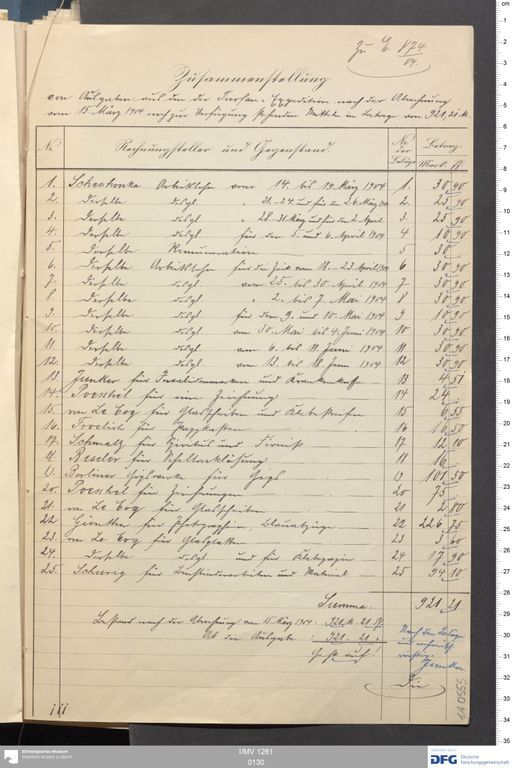 Zu E. 874/04.
Zusammenstellung
von Ausgaben aus den der Turfan-Expedition nach der Abrechnung
vom 15. März 1904 noch zur Verfügung stehenden Mitteln im Betrage von 921,21 M.
No Rechnungssteller und Gegenstand. No der Beläge Betrag Mark. Pf.
1. Arbeitslohn vom 14. bis 19. März 1904 1. 30 90
2. Derselbe desgl. 21.-24. und für den 26. März 1904 2. 25 90
3. Derselbe desgl. 28.-31. März und für den 2. April 3. 25 90
4. Derselbe desgl. für den 5. und 6. April 1904 4 10 90
5. Derselbe Remuneration 5 30
6. Derselbe Arbeitslohn für die Zeit vom 18.-23. April 1904 6 30 90
7. Derselbe desgl. vom 25. bis 30. April 1904 7 30 90
8 Derselbe desgl. 2. bis 7. Mai 1904 8 30 90
9. Derselbe desgl. für den 9. und 10. Mai 1904 9 10 90
10. Derselbe desgl. vom 30. Mai bis 4. Juni 1904 10 30 90
11. Derselbe desgl. vom 6. bis 11. Juni 1904 11 30 90
12. Derselbe desgl. vom 13. bis 18. Juni 1904 12 30 90
13. Junker für Invalidenmarken und Krankenkasse 13 4 51
14. Poeschel für eine Zeichnung 14 24
15. von Le Coq für Glasscheiben und 15 6 55
16. für Pappkasten 16 16 50
17. Schmaltz für und Firnis 17 12 10
18. für Schellacklösung 18 16
19. Berliner Gipswerke für Gips 19 101 50
20. Poeschel für Zeichnungen 20 75
21. von Le Coq für Glasscheiben 21 2 80
22. Günther für Photographien, 22 226 75
23. von Le Coq für Glasplatten 23 3 60
24. Derselbe desgl. und für 24 17 90
25. für und Material 25 94 10
Summa. 921 21
Bestand nach der Abrechnung vom 15. März 1904: 921 M. 21 Pf.
Ab die Ausgabe: 921. 21.
Geht auf!
Nach den Belegen
und rechnerisch
richtig.
Junker
Die
1A 0555
Ethnologisches Museum
Staatliche Museen zu Berlin
I/MV 1261
0130
DFG Deutsche
Forschungsgemeinschaft